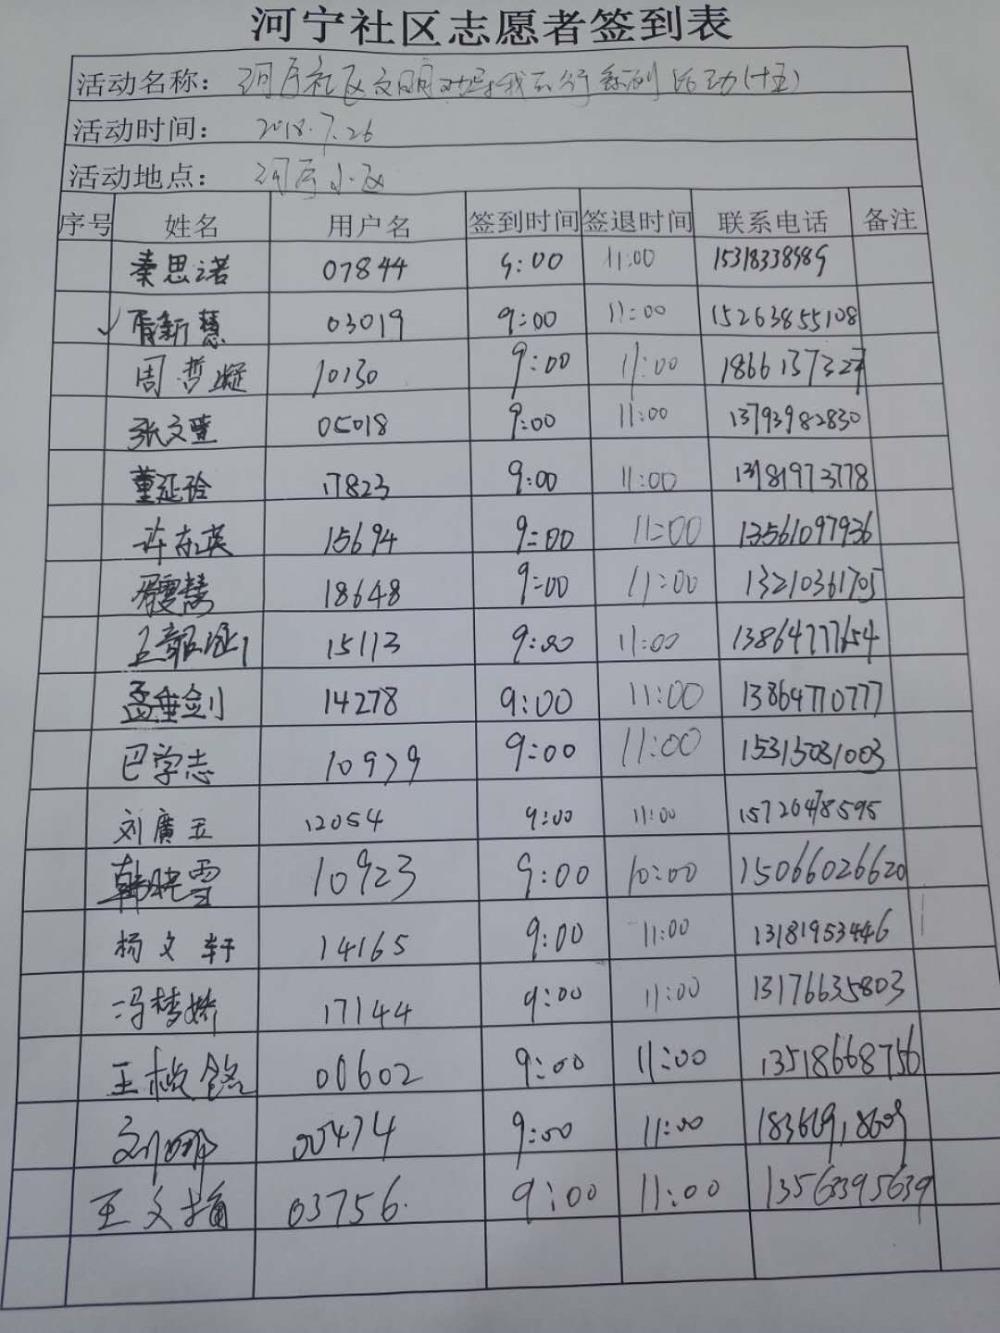 河宁社区志愿者签到表
活动名称: 河宁社区文明劝导我先行系列活动(十五)
活动时间: 2018.7.26
活动地点: 河宁小区
序号 姓名 用户名 签到时间 签退时间 联系电话 备注
秦思诺 07844 9:00 11:00 15318338989
新慧 03019 9:00 11:00 15263855108
周哲凝 10130 9:00 11:00 1866137327
张文萱 05018 9:00 11:00 13793982830
董延玲 17823 9:00 11:00 13181973778
许东英 15694 9:00 11:00 13561097936
18648 9:00 11:00 13210361705
15113 9:00 11:00 13864777654
孟垂剑 14278 9:00 11:00 13864710777
巴学志 10979 9:00 11:00 15315031003
刘廣五 12054 9:00 11:00 15720478595
韩晓雪 10923 9:00 10:00 15066026620
杨文轩 14165 9:00 11:00 13181953446
冯梦娇 17144 9:00 11:00 13176635803
王 00602 9:00 11:00 13518668756
刘娜 00474 9:00 11:00
王文 03756 9:00 11:00 13563395639